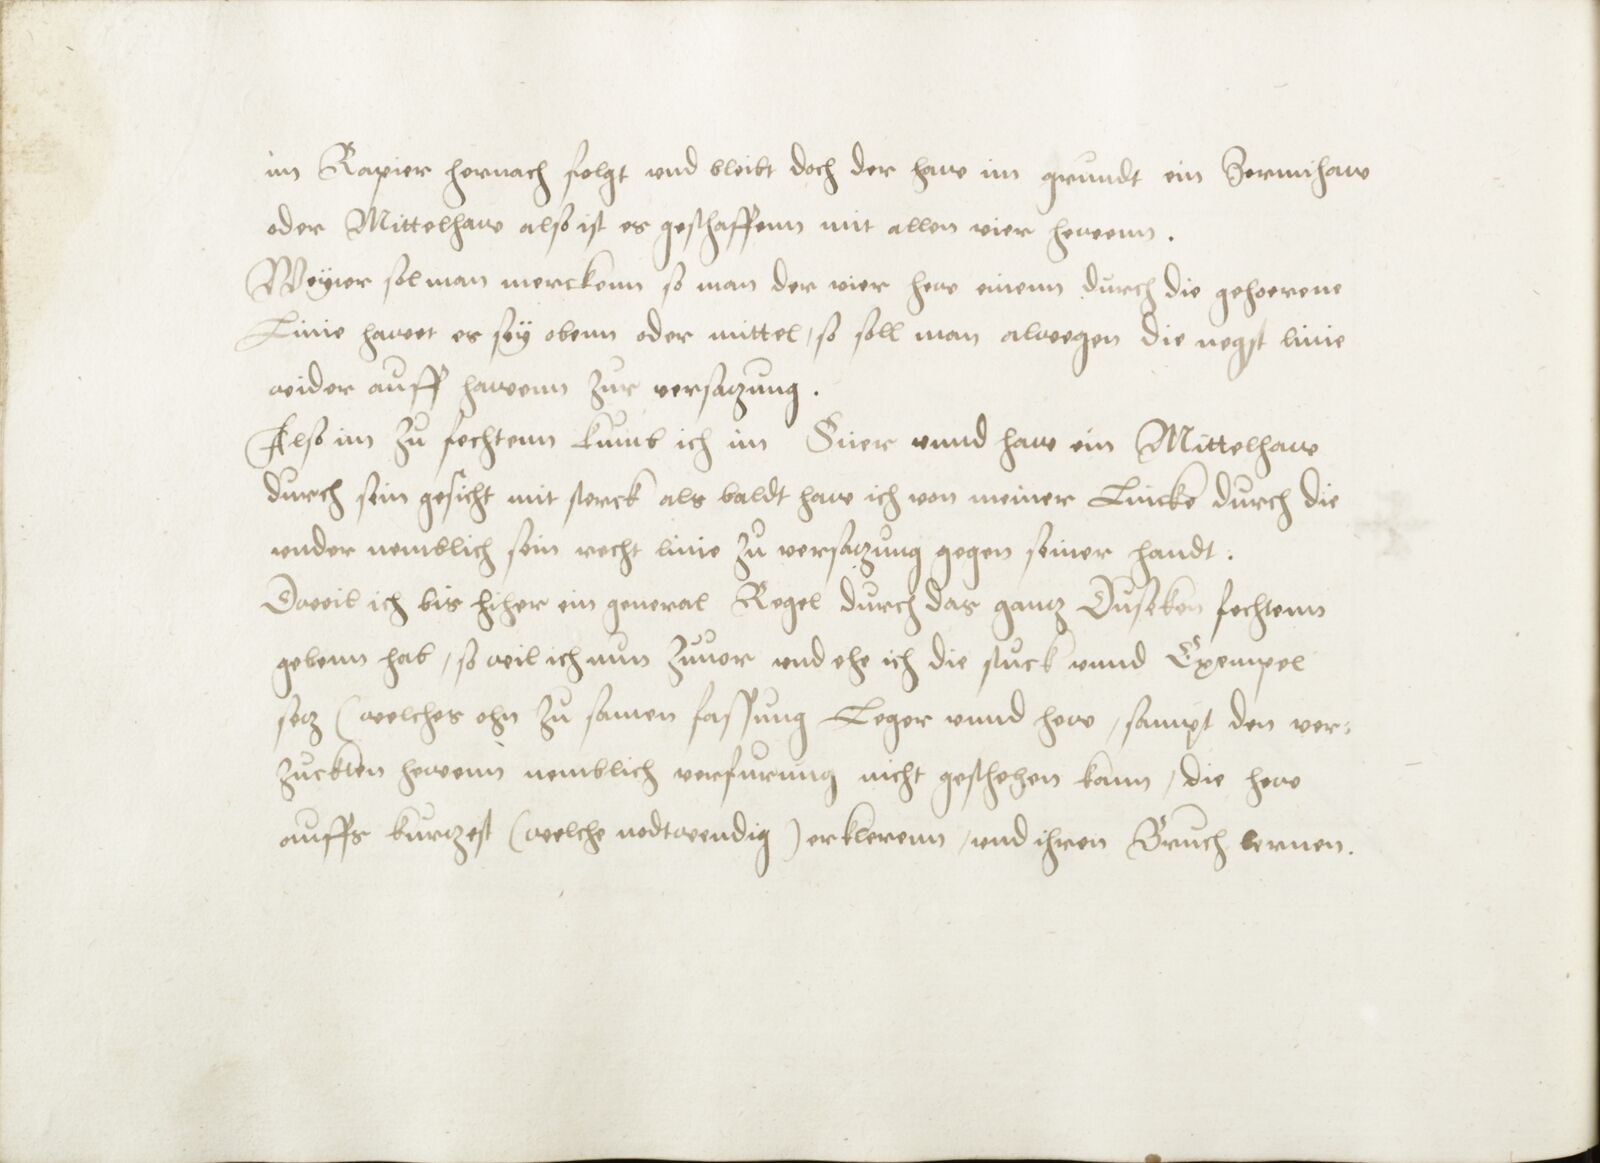 im Rapier hernach folgt vnd bleibt doch der haw im grundt ein Zwerinhaw
oder Mittelhaw also ist es geschaffenn mit allen vier hewenn.
Weyter sol man merckenn so man der vier hew einenn durch die gehoerene
Linie hawet es seÿ obenn oder mittel, so soll man alwegen die negst linie
wider auff hawenn zur versatzung.
Also im zu fechtenn kumb ich im Stier vnnd haw ein Mittelhaw
durch sein gesicht mit sterck als baldt haw ich von meiner Lincke durch die
vnder nemblich sein recht linie zu versatzung gegen seiner handt.
Dweil ich bis hiher ein general Regel durch das gantz Duseken fechtenn
gebenn hab, so wil ich nun zuuor vnd ehe ich die stuck vnnd Exempel
setz (welches ohn zu samen fassung Leger vnnd hew, sampt den ver-
zuckten hewenn nemblich verfurung nicht geschehen kann, die hew
auffs kurtzest (welche nodtwendig) erklerenn, vnd ihren Bruch lernen.